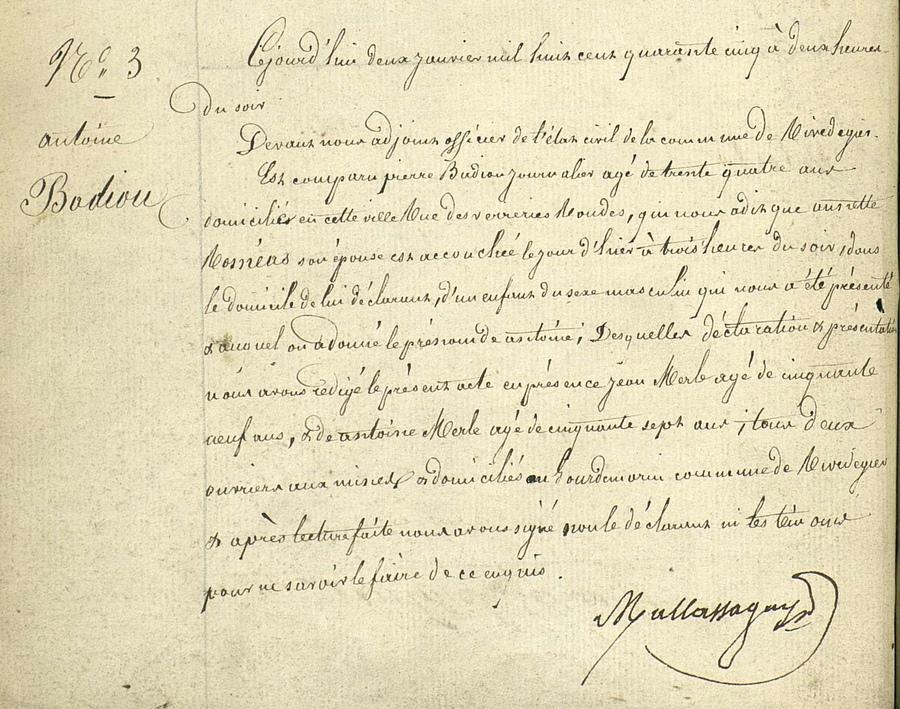 No. 3
antoine
Badiou
Cejourd'hui deux janvier mil huit cent quarante cinq à deux heures
du soir
Devant nous adjoint officier de l'état civil de la commune de Rivedegier.
Est comparu pierre Badiou journalier agé de trente quatre ans
domiciliés en cette ville Rue des verreries Rondes, qui nous a dit que annette
son épouse est accouchée le jour d'hier à trois heures du soir, dans
le domicile de lui déclarant, d'un enfant du sexe masculin qui nous a été présenté
& auquel on a donné le prénom de antoine; Desquelles déclaration & présentation
nous avons redigé le présent acte en présence jean Merle agé de cinquante
neuf ans, & de antoine Merle agé de cinquante sept ans, tous deux
ouvriers aux mines & domiciliés commune de Rivedegier
& après lecture faite nous avons signé non le déclarant ni les témoins
pour ne savoir le faire de ce enquis.